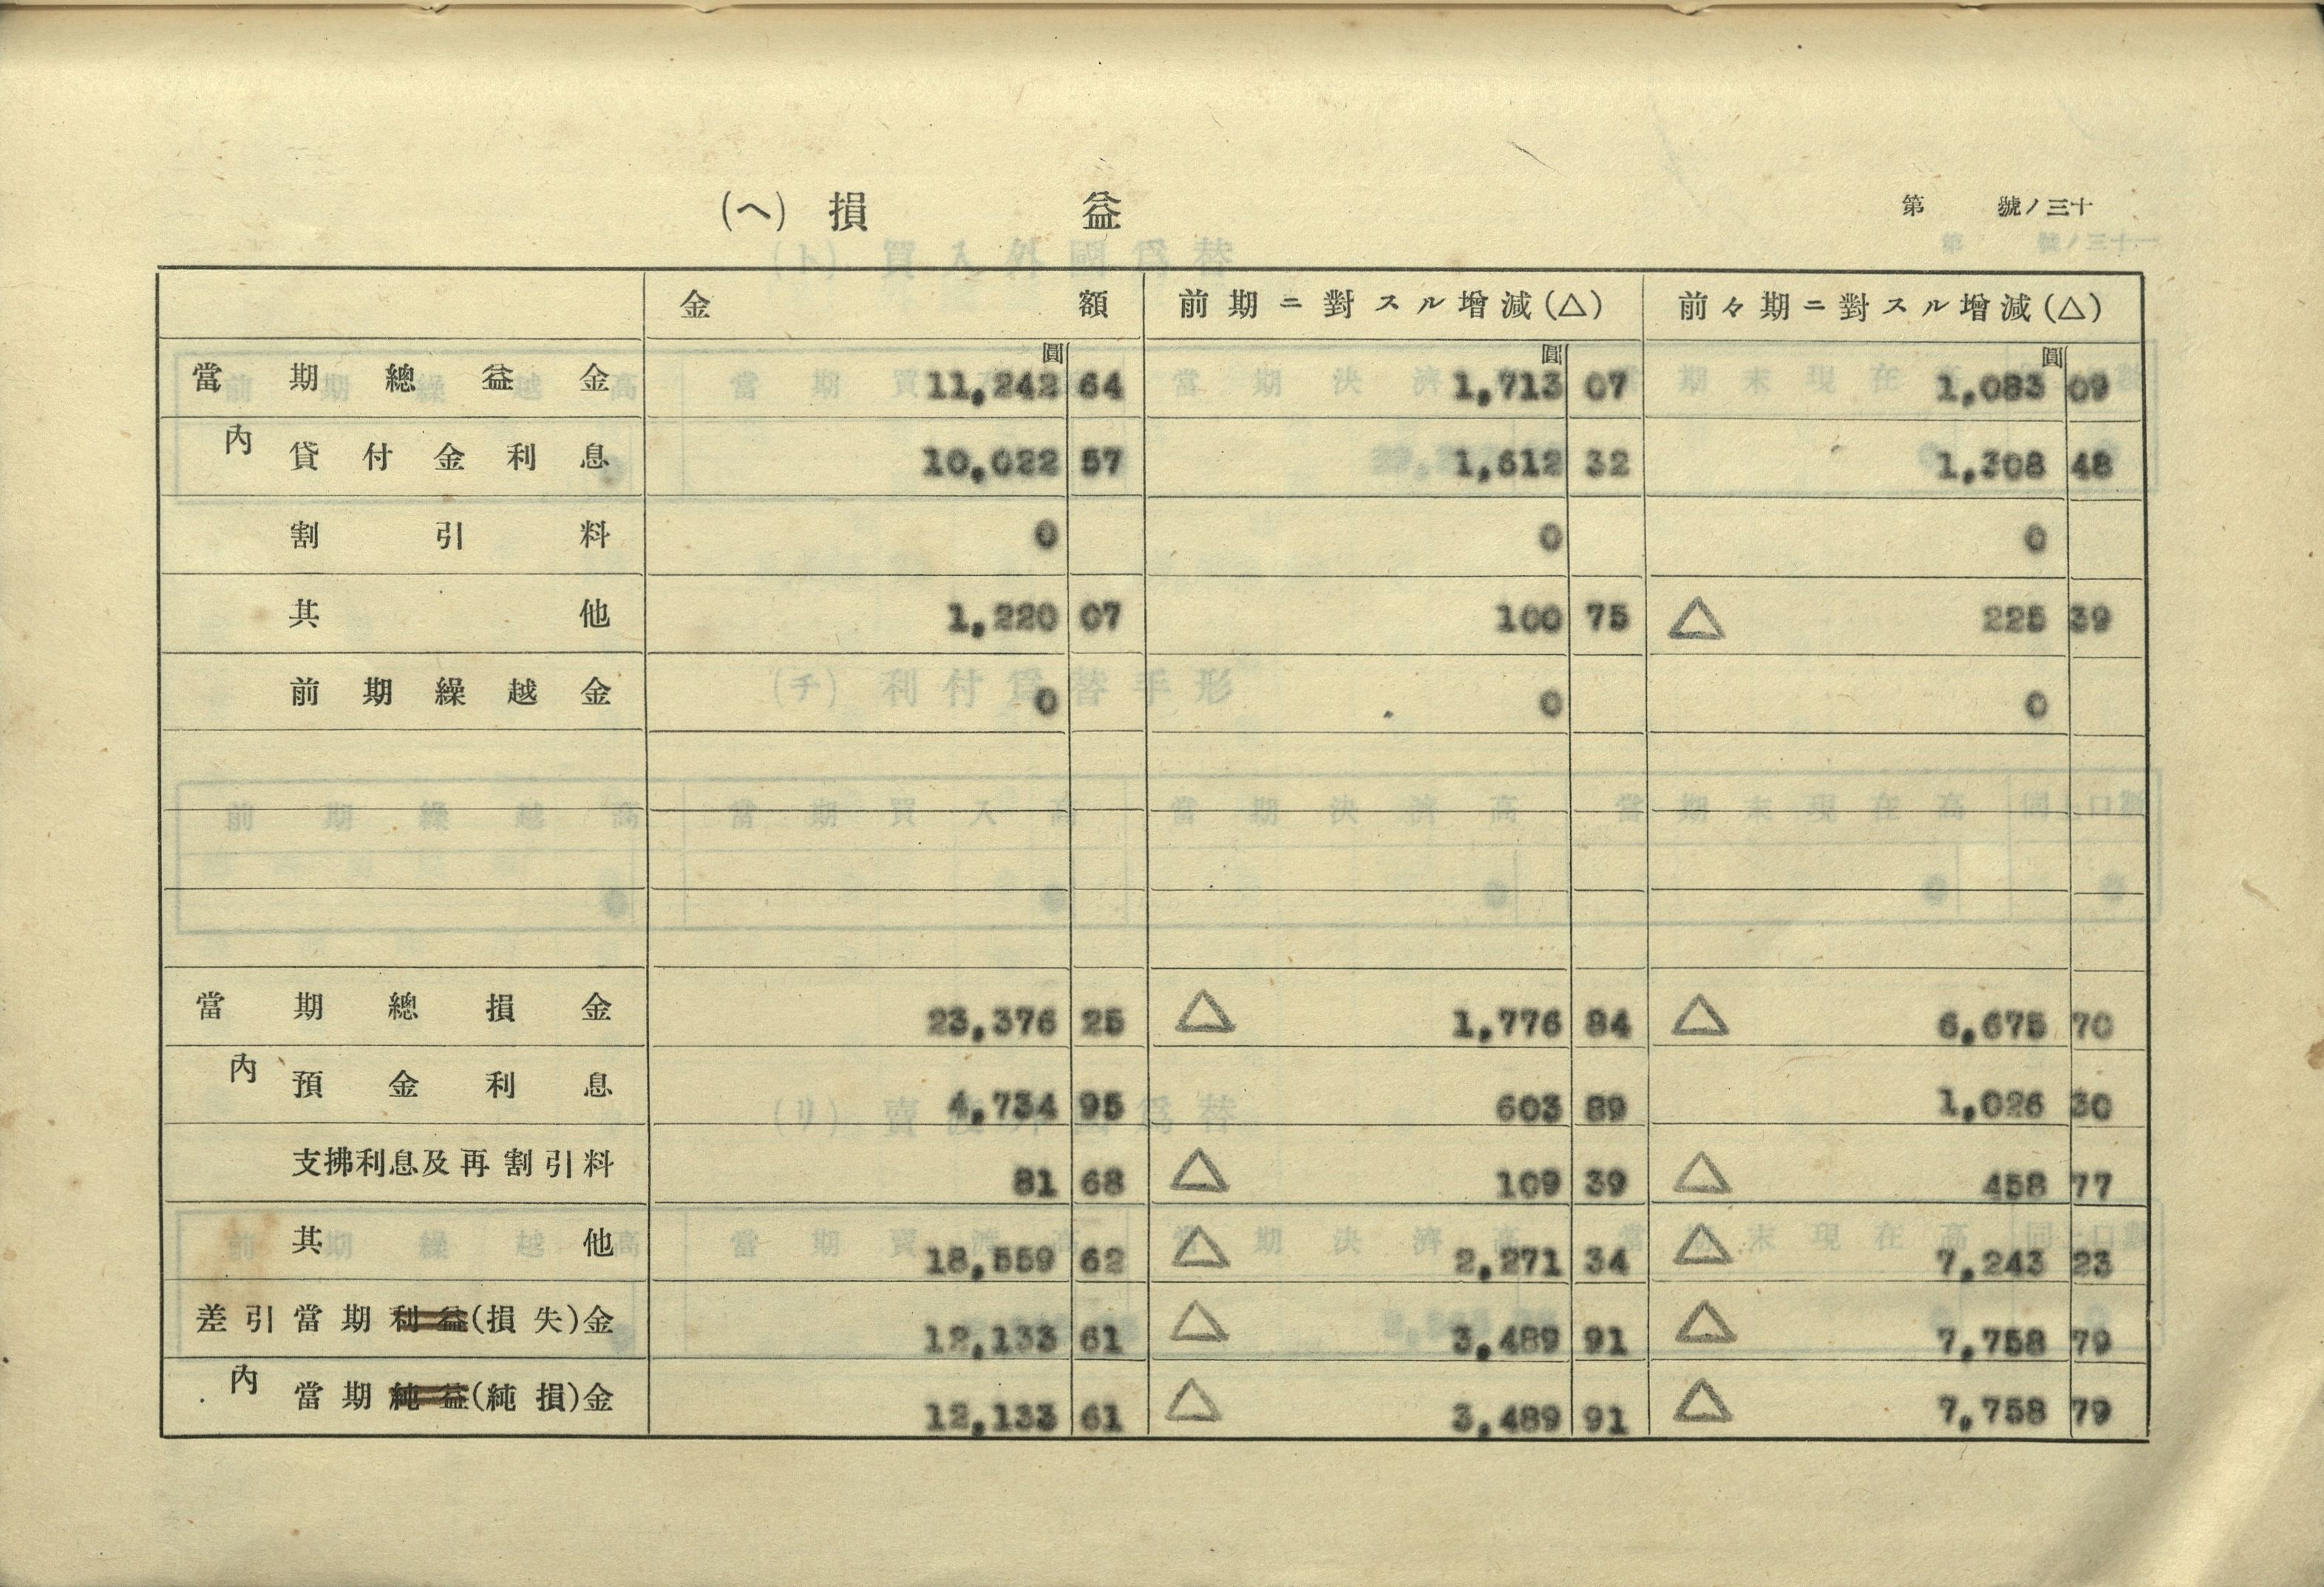 (ヘ) 損益
第 號ノ三十
金額 前期ニ對スル增減(△) 前々期ニ對スル增減(△)
圓 圓 圓
當期總益金 11,242 64 1,713 07 1,083 09
內 貸付金利息 10,022 57 1,612 32 1,308 48
割引料 0 0 0
其他 1,220 07 100 75 △ 225 39
前期繰越金 0 0 0
當期總損金 23,376 25 △ 1,776 84 △ 6,675 70
內 預金利息 4,734 95 603 89 1,026 30
支拂利息及再割引料 81 68 △ 109 39 △ 458 77
其他 18,559 62 △ 2,271 34 △ 7,243 23
差引當期利益(損失)金 12,133 61 △ 3,489 91 △ 7,758 79
內 當期純益(純損)金 12,133 61 △ 3,489 91 △ 7,758 79